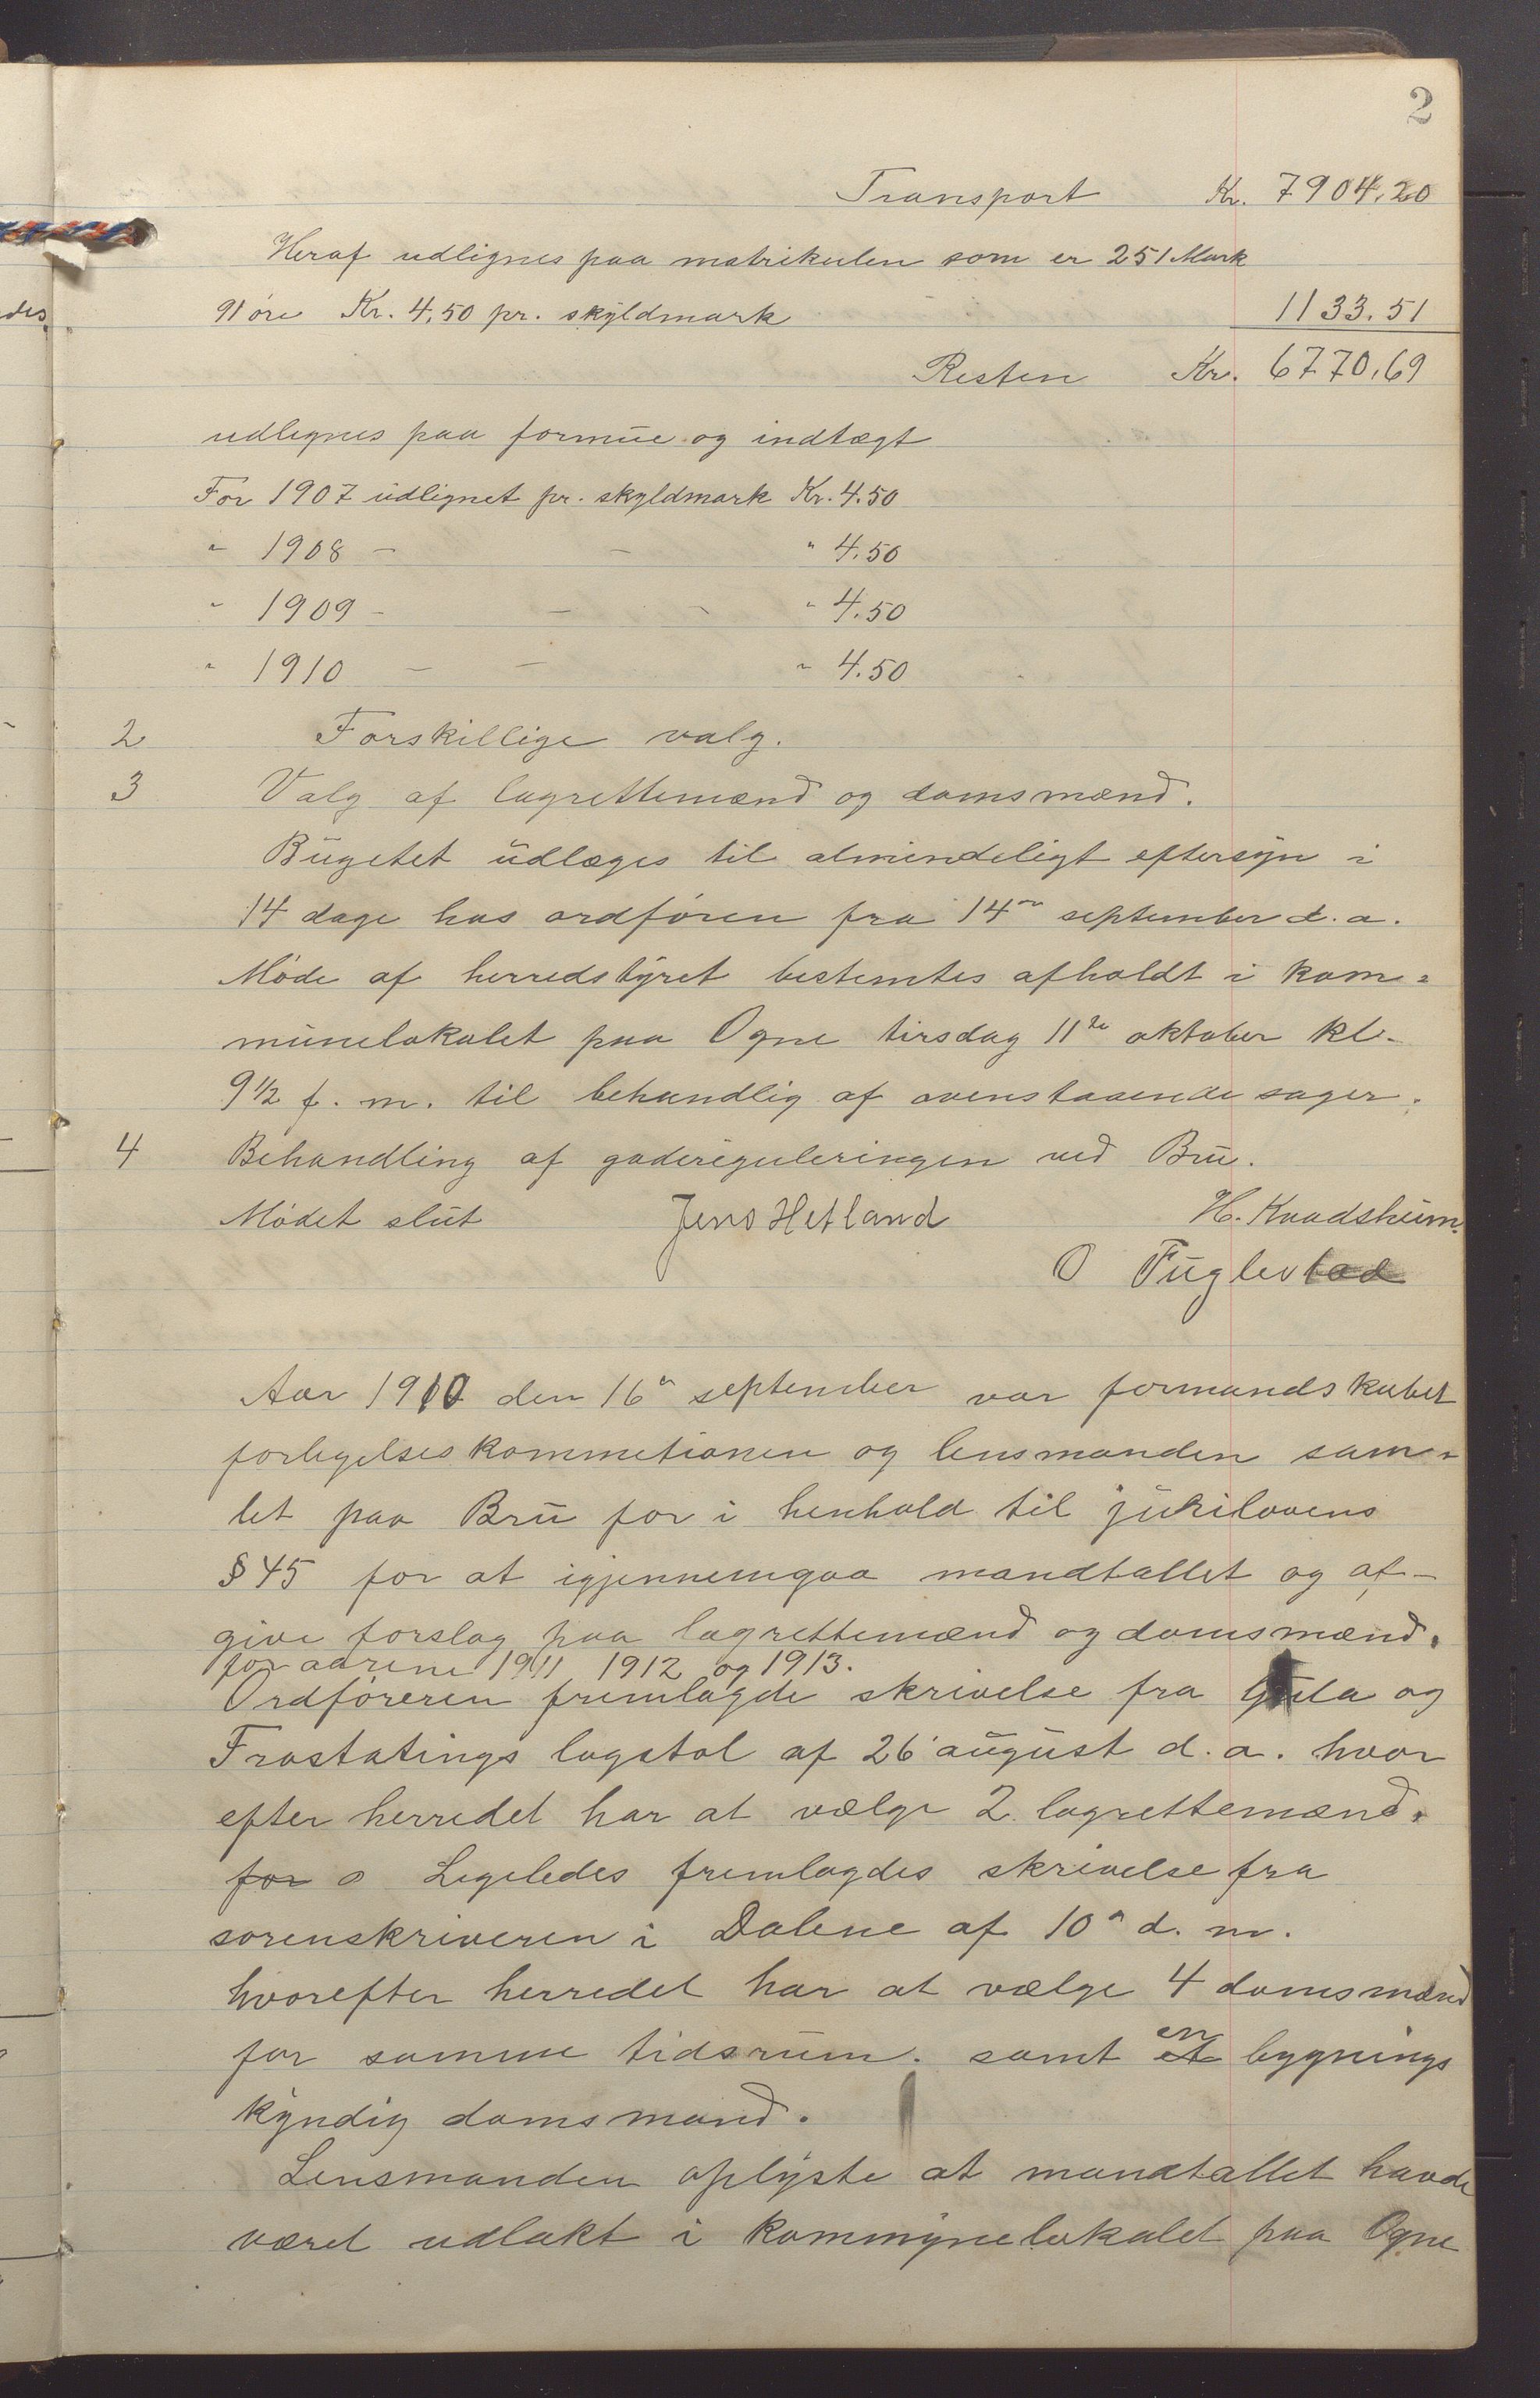 2
Transport Kr. 7904.20
Heraf udlignes paa matrikulen som er 251 Mark
91 øre Kr. 4,50 pr. skyldmark 1133.51
Resten Kr. 6770,69
udlignes paa formue og indtægt
For 1907 udlignet pr. skyldmark Kr. 4.50
" 1908 – – " 4.50
" 1909 – – – " 4.50
" 1910 – – " 4.50
2 Forskillige valg.
3 Valg af lagrettemænd og domsmænd.
Bugetet udlæges til almindeligt eftersyn i
14 dage hos ordføren fra 14de september d. a.
Møde af herredstyret bestemtes afholdt i kom=
munelokalet paa Ogne tirsdag 11te oktober kl.
9 1/2 f. m. til behandlig af ovenstaaende sager.
4 Behandling af gadereguleringen ved Bru.
Mødet slut Jens Hetland H. Kvadsheim.
O Fuglestad
Aar 1910 den 16de september var formandskabet
forligelseskommetionen og lensmanden sam-
let paa Bru for i henhold til jurilovens
§ 45 for at igjennemgaa mandtallet og af-
give forslag paa lagrettemænd og domsmænd.
for aarene 1911 1912 og 1913.
Ordføreren fremlagde skrivelse fra Gula og
Frostatings lagstol af 26 august d. a. hvor
efter herredet har at vælge 2 lagrettemænd.
for Ligeledes fremlagdes skrivelse fra
sorenskriveren i Dalene af 10de d. m.
hvorefter herredet har at vælge 4 domsmænd
for samme tidsrum. samt et en bygnings
kyndig domsmand.
Lensmanden oplyste at mandtallet havde
været udlakt i kommynelokalet paa Ogne